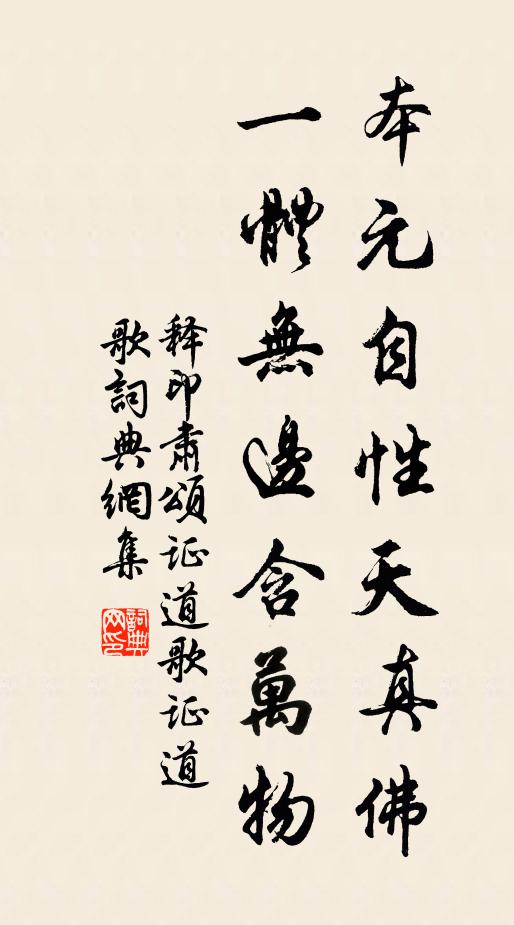 本元自性天真佛
一體無邊含萬物
释印肃颂证道歌证道
歌詞典網集
詞典网印